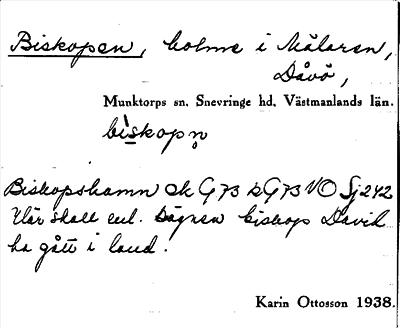 Biskopen, holme i Mälaren,
Dåvö,
Munktorps sn. Snevringe hd. Västmanlands län.
biskopn
Biskopshamn Ek G 73 bG 73 VO Sj 242
Här skall enl. sägnen biskop David
ha gått i land.
Karin Ottosson 1938.